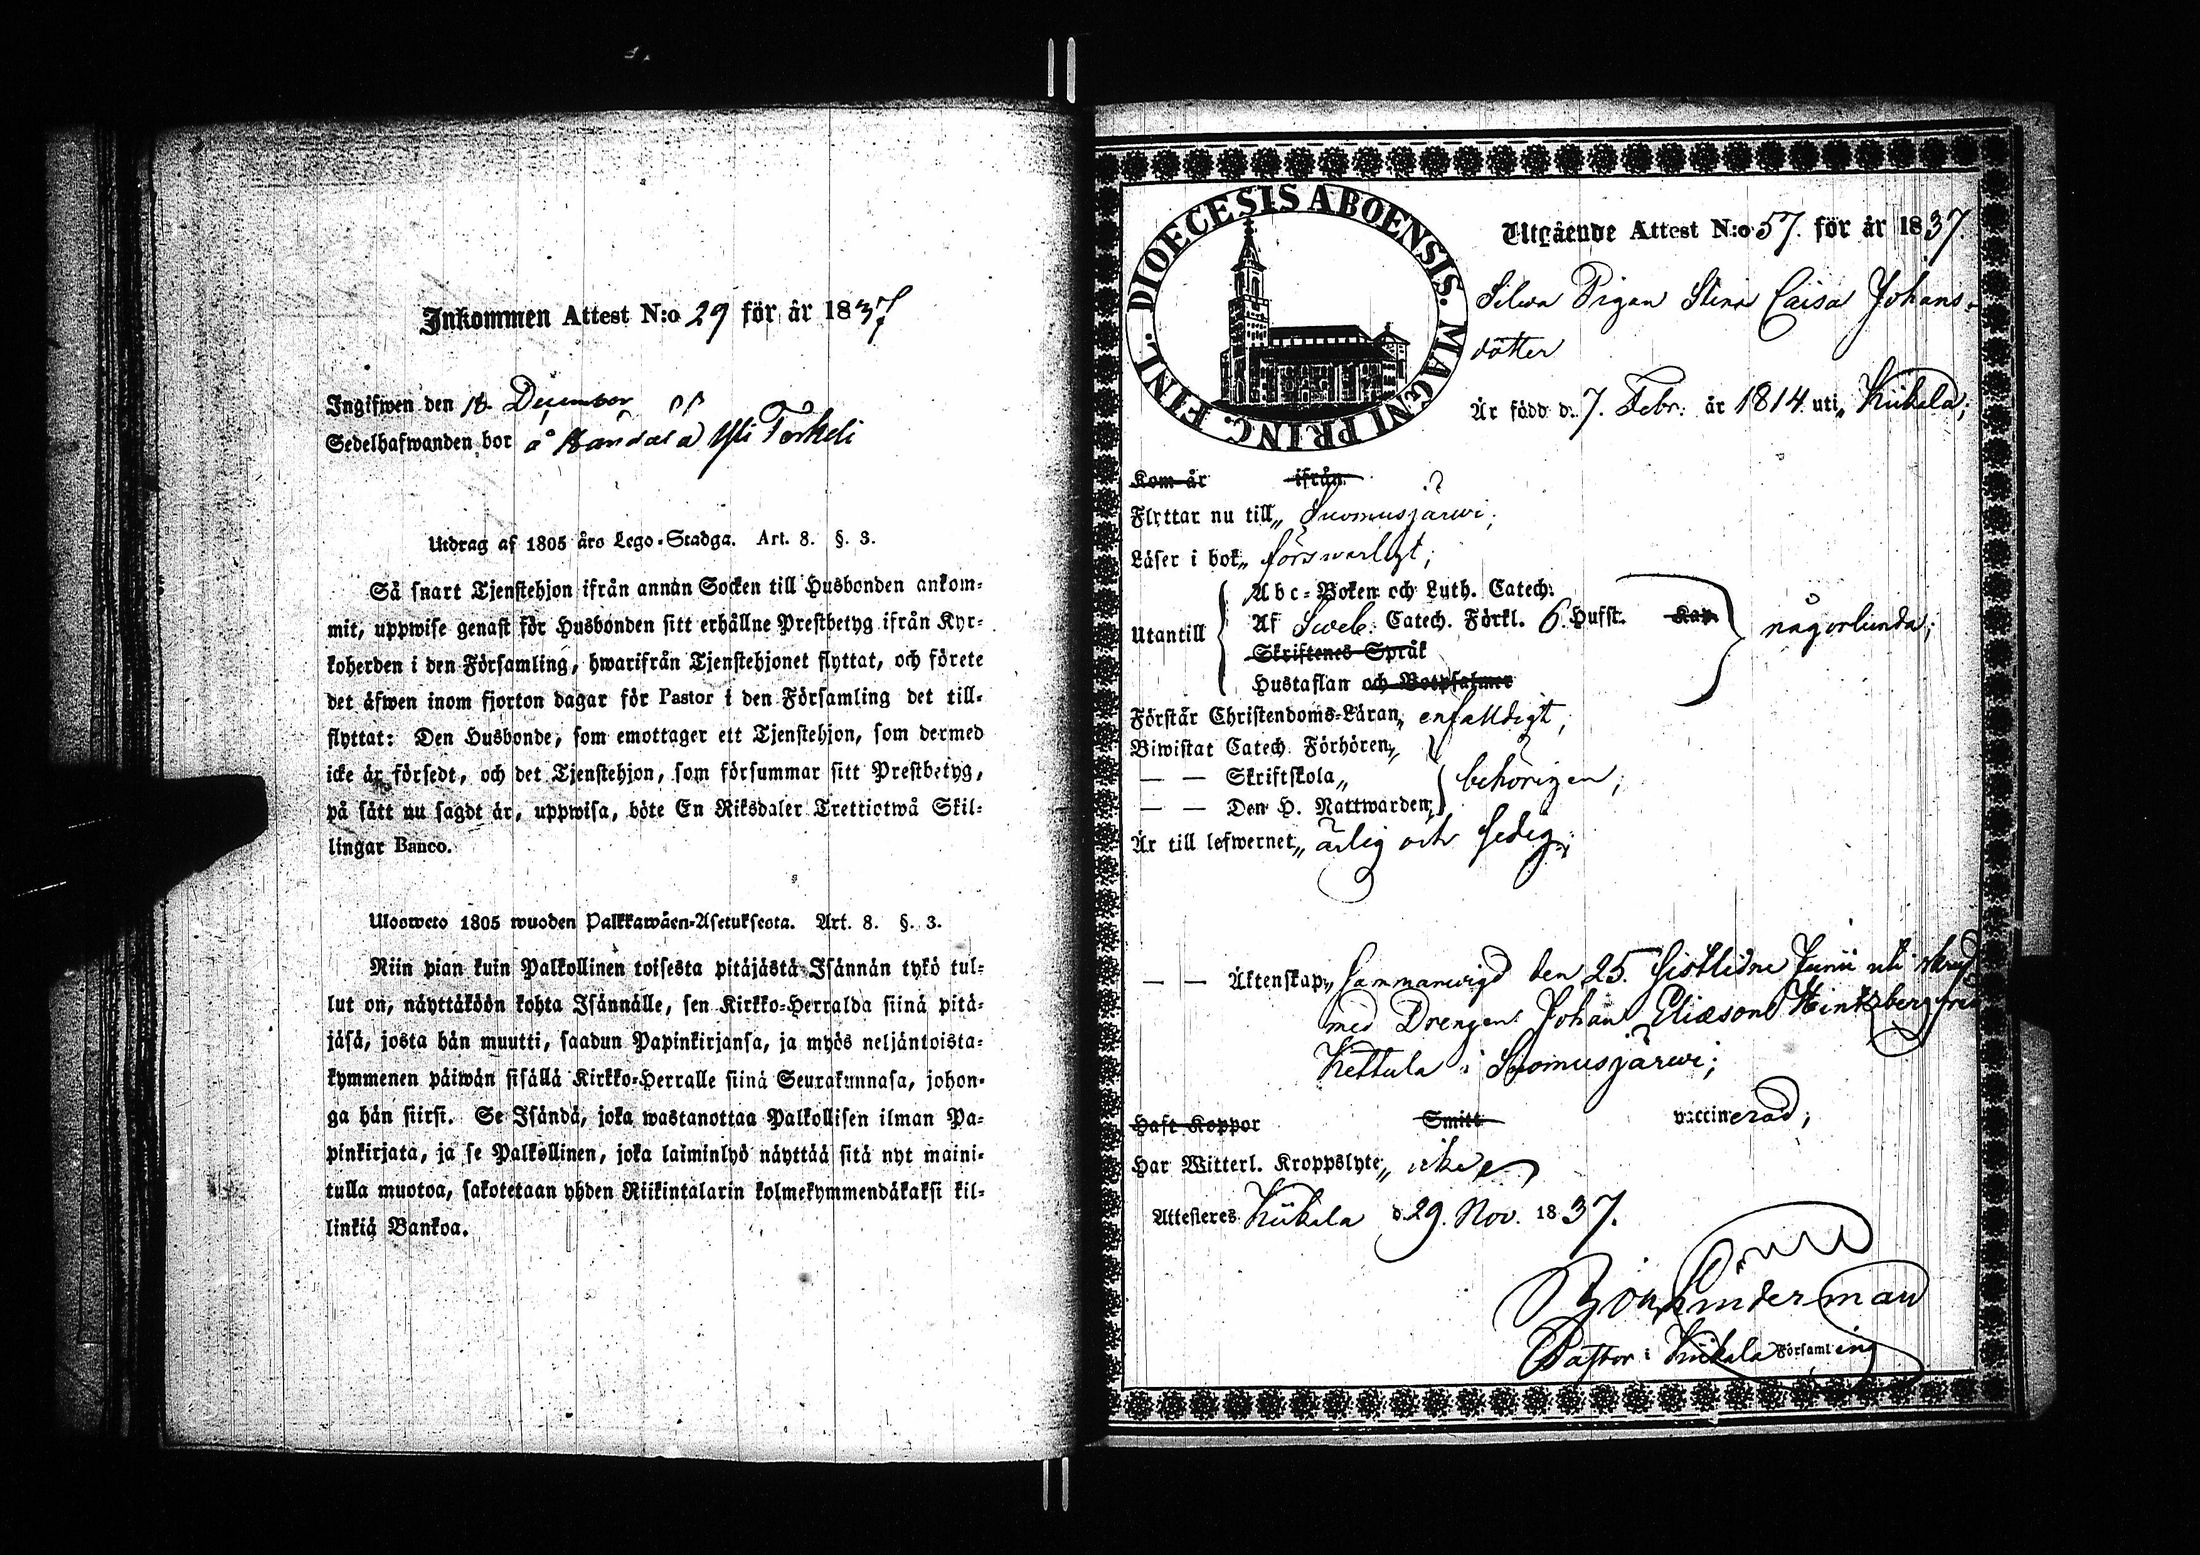 Inkommen Attest N:o 29 för år 1837
Ingifwen den 18. December
Sedelhafwanden bor å Yli Torkeli
Utdrag af 1805 års Lego-Stadga. Art. 8. §. 3.
Så snart Tjenstehjon ifrån annan Socken till Husbonden ankom-
mit, uppwise genast för Husbonden sitt erhållne Prestbetyg ifrån Kyr-
koherden i den Församling, hwarifrån Tjenstehjonet flyttat, och förete
det äfwen inom fjorton dagar för Pastor i den Församling det till-
flyttat: Den Husbonde, som emottager ett Tjenstehjon, som dermed
icke är försedt, och det Tjenstehjon, som försummar sitt Prestbetyg,
på sätt nu sagdt är, uppwisa, böte En Riksdaler Trettiotwå Skil-
lingar Banco.
Ulosweto 1805 wuoden Palkkawäen-Asetuksesta. Art. 8. §. 3.
Niin pian kuin Palkollinen toisesta pitäjästä Isännän tykö tul-
lut on, näyttäköön kohta Isännälle, sen Kirkko-Herralda siinä pitä-
jäsä, josta hän muutti, saadun Papinkirjansa, ja myös neljäntoista-
kymmenen päiwän sisällä Kirkko-Herralle siinä Seurakunnasa, johon-
ga hän siirsi. Se Isändä, joka wastanottaa Palkollisen ilman Pa-
pinkirjata, ja se Palkollinen, joka laiminlyö näyttää sitä nyt maini-
tulla muotoa, sakotetaan yhden Riikintalarin kolmekymmendäkaksi kil-
linkiä Bankoa.
DIOECESIS ABOENSIS. MAGNI PRINC. FINL.
Utgående Attest N:o 57. för år 1837.
Pigan Stina Caisa Johans-
dotter
Är född d. 7. Febr. år 1814 uti Kiikala;
Kom år ifrån
Flyttar nu till Suomusjärwi;
Läser i bok förswarligt;
Utantill
Abc-Boken och Luth. Catech.
Af Sweb. Catech. Förkl. 6. Hufst. Kap. någorlunda;
Skriftenes Språk
Hustaflan och Botpsalmer
Förstår Christendoms-Läran enfalldigt;
Biwistat Catech. Förhören
— — Skriftskola behörigen;
— — Den H. Nattwarden
Är till lefwernet ärlig och sedig;
— — Äktenskap Sammanwigd den 25. sistlidne Junii uti
med Drengen Johan Eliæson Hintzberg från
Kettula i Suomusjärwi;
Haft Koppor Smitt vaccinerad;
Har Witterl. Kroppslyte icke
Attesteras Kiikala d. 29. Nov. 1837.
Pastor i Kiikala Församling